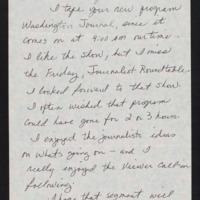 I tape your new program
Washington Journal, since it
comes on at 4:00 am our time.
I like the show, but I miss
the Friday, Journalist Roundtable.
I looked forward to that show.
I often wished that program
could have gone for 2 or 3 hours.
I enjoyed the journalists ideas
on what's going on - and I
really enjoyed the Viewer Call-in
following.
I hope that segment will